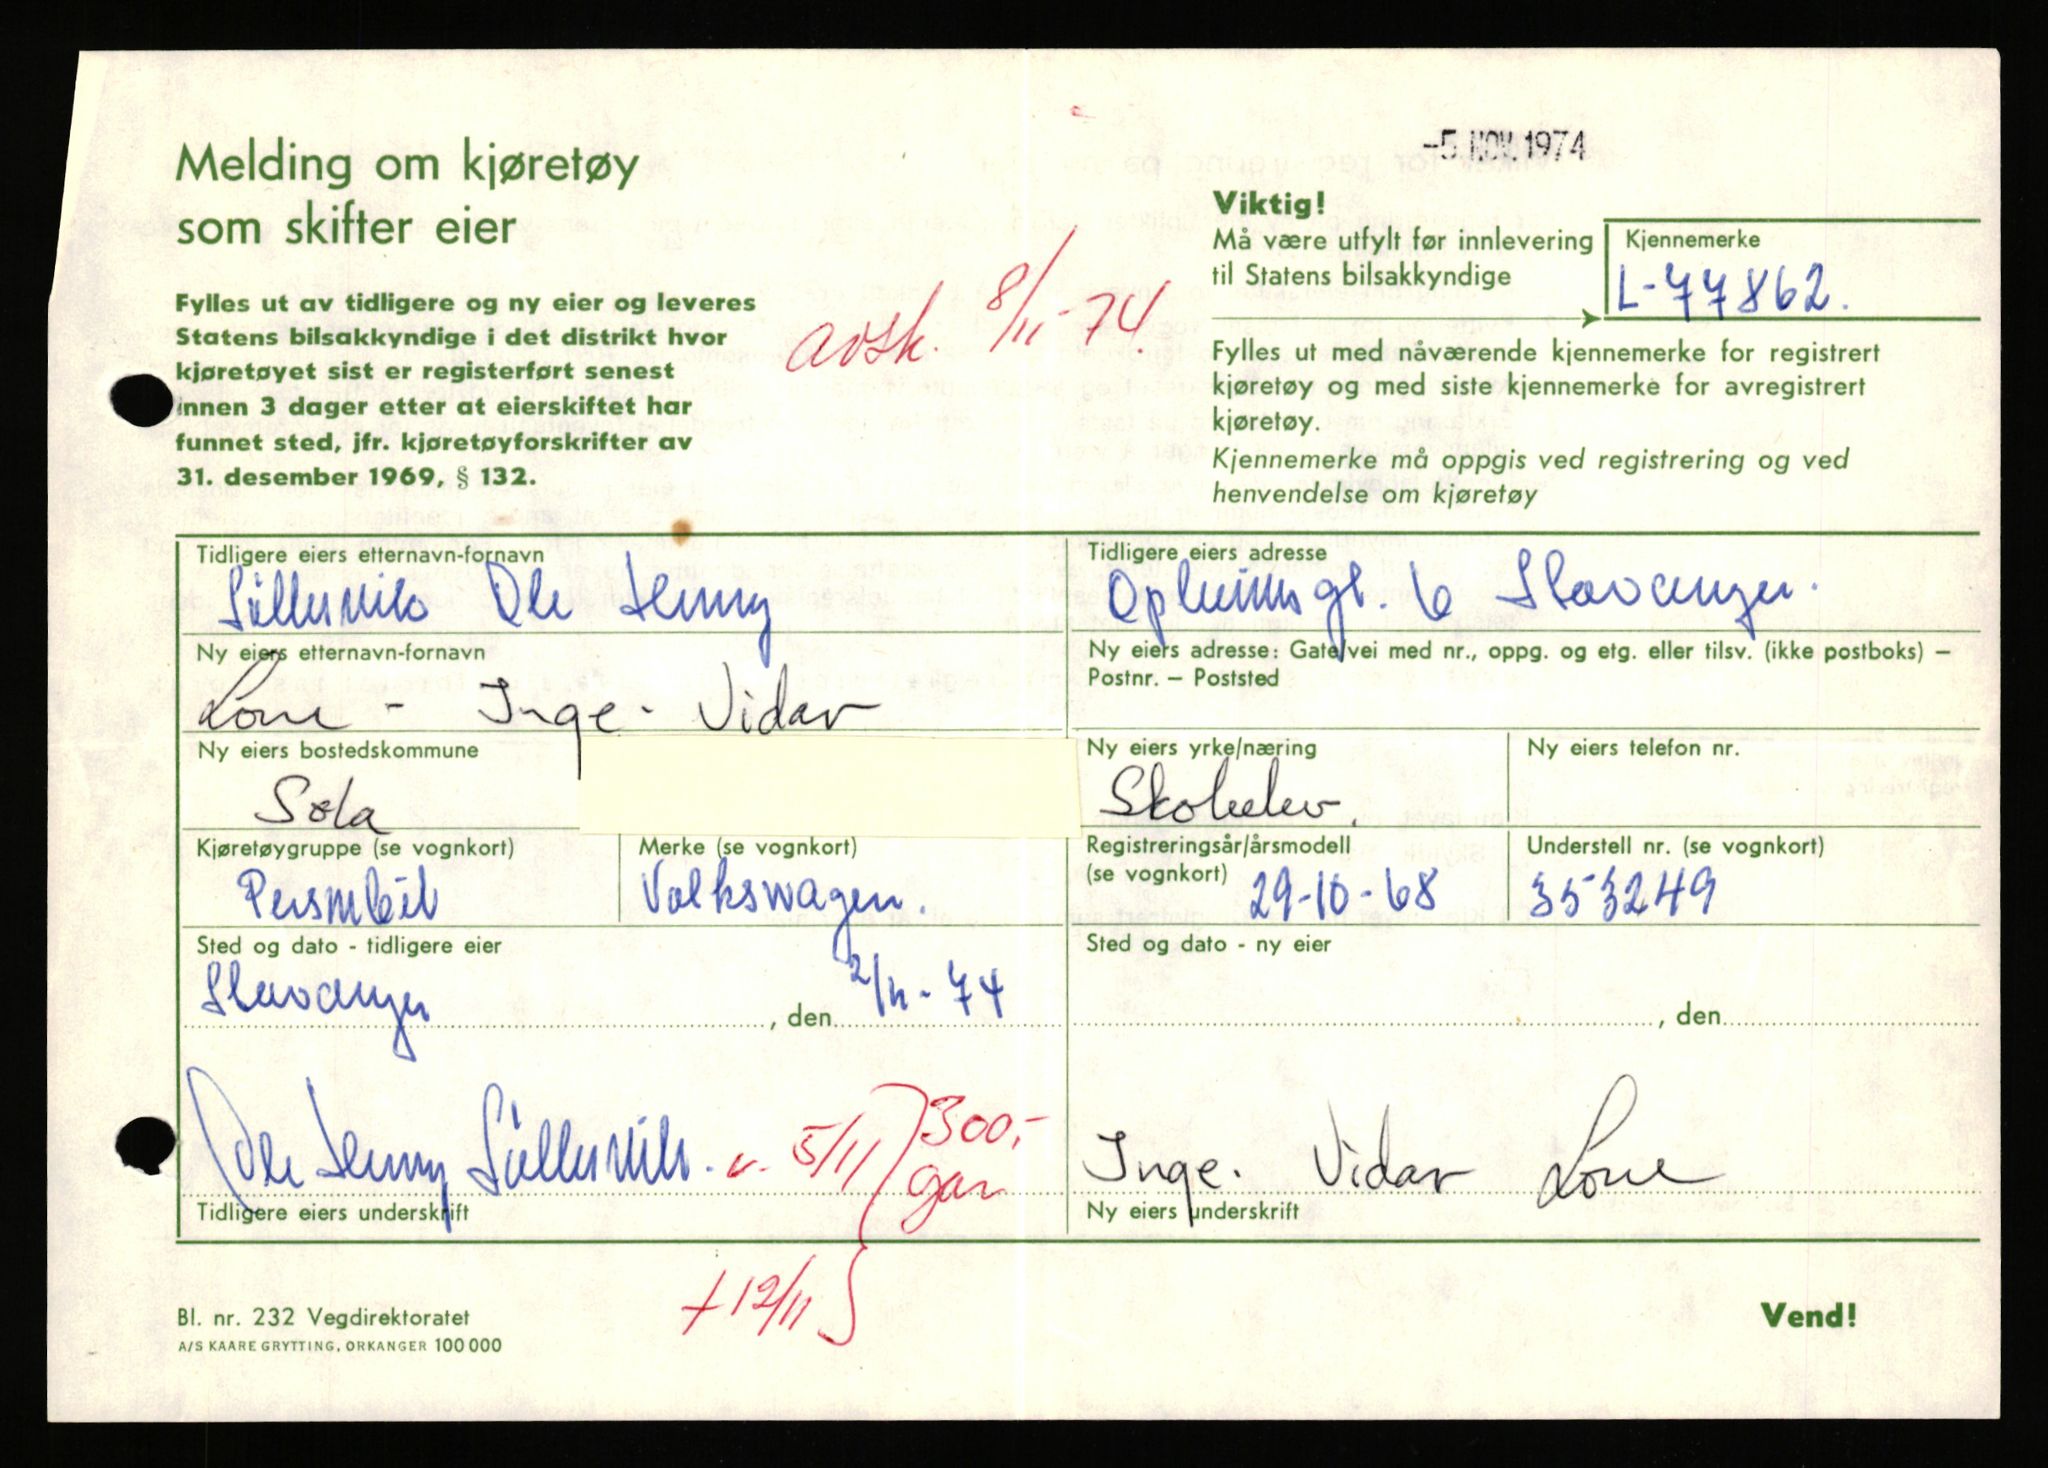 -5 NOV. 1974
Melding om kjøretøy
som skifter eier
Fylles ut av tidligere og ny eier og leveres
Statens bilsakkyndige i det distrikt hvor
kjøretøyet sist er registerført senest
innen 3 dager etter at eierskiftet har
funnet sted, jfr. kjøretøyforskrifter av
31. desember 1969, § 132.
avsk. 8/11-74.
Viktig!
Må være utfylt før innlevering
til Statens bilsakkyndige
Kjennemerke
L-77862.
Fylles ut med nåværende kjennemerke for registrert
kjøretøy og med siste kjennemerke for avregistrert
kjøretøy.
Kjennemerke må oppgis ved registrering og ved
henvendelse om kjøretøy
Tidligere eiers etternavn-fornavn
Ole Henny
Tidligere eiers adresse
gt. 6 Stavanger.
Ny eiers etternavn-fornavn
Lone - Inge - Vidar
Ny eiers adresse: Gate/vei med nr., oppg. og etg. eller tilsv. (ikke postboks) –
Postnr. – Poststed
Ny eiers bostedskommune
Sola
Ny eiers yrke/næring
Skoleelev.
Ny eiers telefon nr.
Kjøretøygruppe (se vognkort)
Personbil
Merke (se vognkort)
Volkswagen.
Registreringsår/årsmodell
(se vognkort) 29-10-68
Understell nr. (se vognkort)
353249
Sted og dato - tidligere eier
Stavanger , den 2/11-74
Sted og dato - ny eier
, den
Ole Henny v. 5/11 300,-
gar
Tidligere eiers underskrift
Inge. Vidar Lone
Ny eiers underskrift
+12/11
Bl. nr. 232 Vegdirektoratet
A/S KAARE GRYTTING, ORKANGER 100 000
Vend!